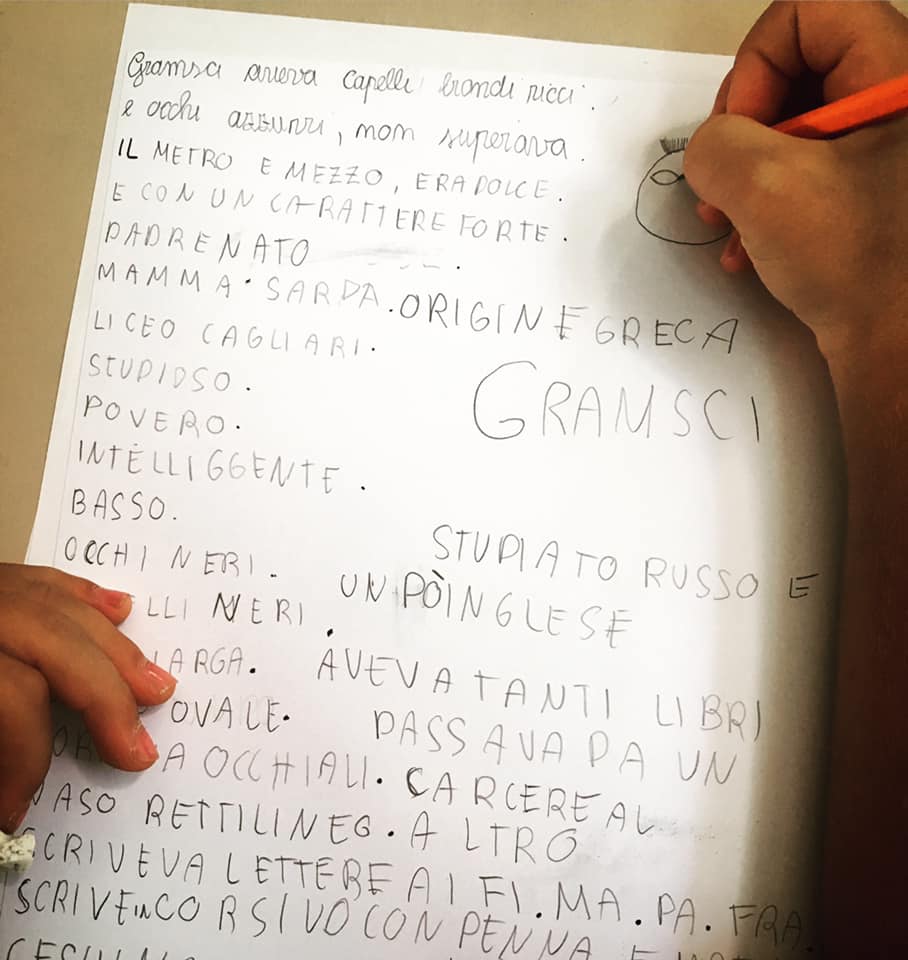 Gramsci aveva capelli biondi ricci.
e occhi azzurri, non superava.
IL METRO E MEZZO, ERA DOLCE.
E CON UN CARATTERE FORTE.
PADRE NATO
MAMMA. SARDA. ORIGINE GRECA
LICEO CAGLIARI.
GRAMSCI
STUPIOSO.
POVERO.
INTELLIGGENTE.
BASSO.
STUPIATO RUSSO E
OCCHI NERI. UN PÒ INGLESE
ELLI NERI.
LARGA. AVEVA TANTI LIBRI
OVALE. PASSAVA DA UN
A OCCHIALI. CARCERE AL
NASO RETTILINEO. ALTRO
SCRIVEVA LETTERE AI FI. MA. PA. FRA.
SCRIVE in CORSIVO CON PENNA E